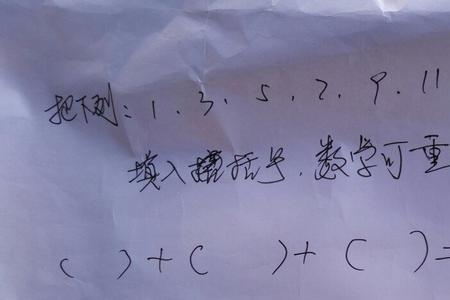 把下列:1、3、5、7、9、11
填入括号,数学可重
( )+( )+( )=